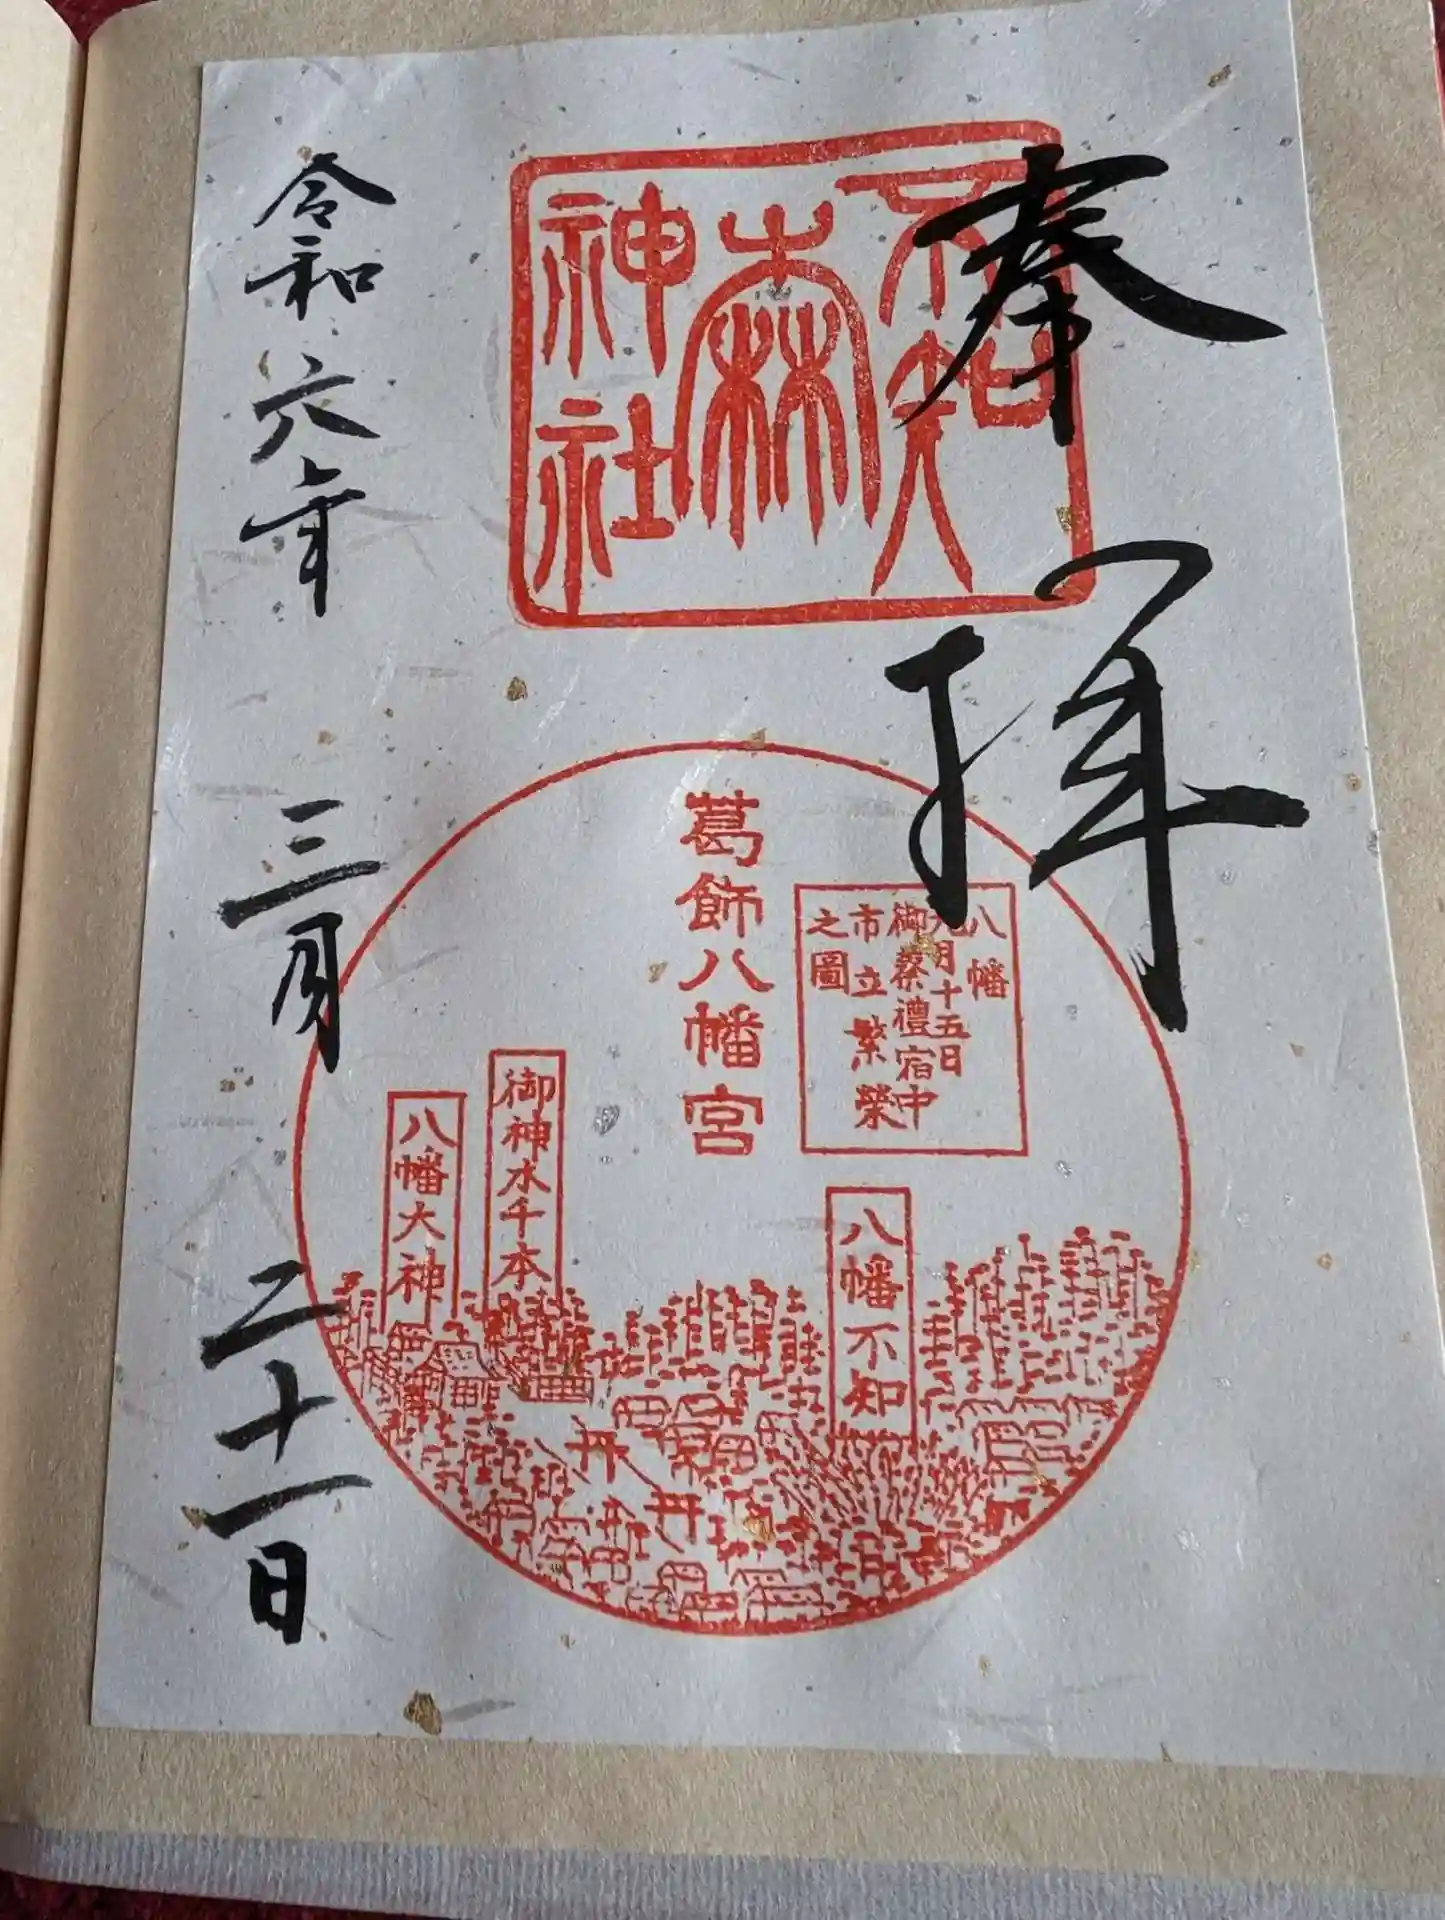 奉拝
不知
森
神社
葛飾八幡宮
八幡
九月十五日
御祭禮宿中
市立繁榮
之圖
八幡不知
御神水千本
八幡大神
令和六年 三月 二十一日